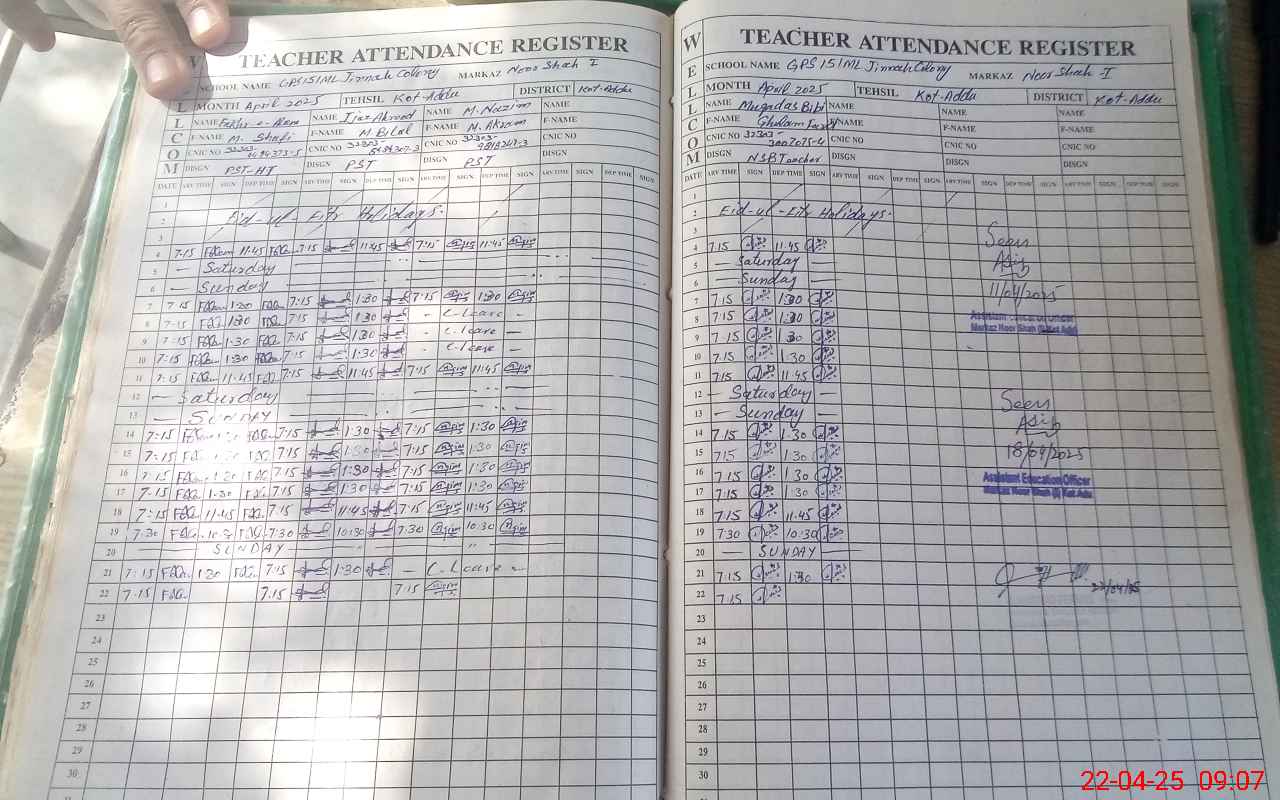 TEACHER ATTENDANCE REGISTER
SCHOOL NAME GPS 151 ML Jinnah Colony MARKAZ Noor Shah I
MONTH April 2025 TEHSIL Kot-Addu DISTRICT Kot-Addu
NAME Fakhr-e-Alam NAME Ijaz Ahmad NAME M. Nazim NAME
F-NAME M. Shafi F-NAME M Bilal F-NAME M. Akram F-NAME
CNIC NO 32303- CNIC NO 32303- CNIC NO 32303- CNIC NO
DISGN PST-HT DISGN PST DISGN PST DISGN
DATE ARV TIME SIGN DEP TIME SIGN ARV TIME SIGN DEP TIME SIGN ARV TIME SIGN DEP TIME SIGN ARV TIME SIGN DEP TIME SIGN
1
2 Eid-ul-Fitr Holidays.
3
4 7:15 11:45 7:15 11:45 7:15 11:45
5 — Saturday
6 — Sunday
7 7:15 1:30 7:15 1:30 7:15 1:30
8 7:15 1:30 7:15 1:30 - C-Leave -
9 7:15 1:30 7:15 1:30 - C-Leave -
10 7:15 1:30 7:15 1:30 - C-Leave -
11 7:15 11:45 7:15 11:45 7:15 11:45
12 — Saturday
13 — SUNDAY
14 7:15 1:30 7:15 1:30 7:15 1:30
15 7:15 1:30 7:15 1:30 7:15 1:30
16 7:15 1:30 7:15 1:30 7:15 1:30
17 7:15 1:30 7:15 1:30 7:15 1:30
18 7:15 11:45 7:15 11:45 7:15 11:45
19 7:30 10:30 7:30 10:30 7:30 10:30
20 SUNDAY
21 7:15 1:30 7:15 1:30 - C-Leave -
22 7:15 7:15 7:15
23
24
25
26
27
28
29
30
WELLCOM
TEACHER ATTENDANCE REGISTER
SCHOOL NAME GPS 151 ML Jinnah Colony MARKAZ Noor Shah-I
MONTH April 2025 TEHSIL Kot-Addu DISTRICT Kot-Addu
NAME Muqadas Bibi NAME NAME NAME
F-NAME Ghulam F-NAME F-NAME
CNIC NO 32303- CNIC NO CNIC NO
DISGN NSB Teacher DISGN DISGN
DATE ARV TIME SIGN DEP TIME SIGN ARV TIME SIGN DEP TIME SIGN ARV TIME SIGN DEP TIME SIGN ARV TIME SIGN DEP TIME SIGN
1
2 Eid-ul-Fitr Holidays.
3
4 7:15 11:45
5 — Saturday —
6 — Sunday —
7 7:15 1:30
8 7:15 1:30
9 7:15 1:30
10 7:15 1:30
11 7:15 11:45
12 — Saturday —
13 — Sunday —
14 7:15 1:30
15 7:15 1:30
16 7:15 1:30
17 7:15 1:30
18 7:15 11:45
19 7:30 10:30
20 — SUNDAY —
21 7:15 1:30
22 7:15
23
24
25
26
27
28
29
30
Seen
Asif
11/04/2025
Assistant Education Officer
Markaz Noor Shah (I) Kot Addu
Seen
Asif
18/04/2025
Assistant Education Officer
Markaz Noor Shah (I) Kot Addu
22/04/25
22-04-25 09:07